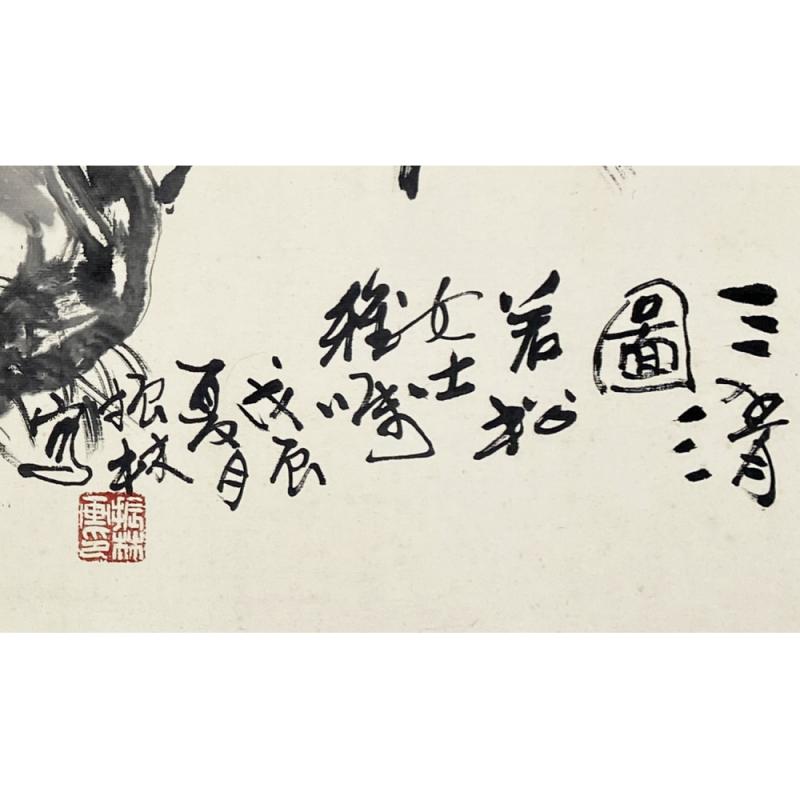 三清
圖
若松
女士
雅囑
戊辰
夏月
振林
寫
振林